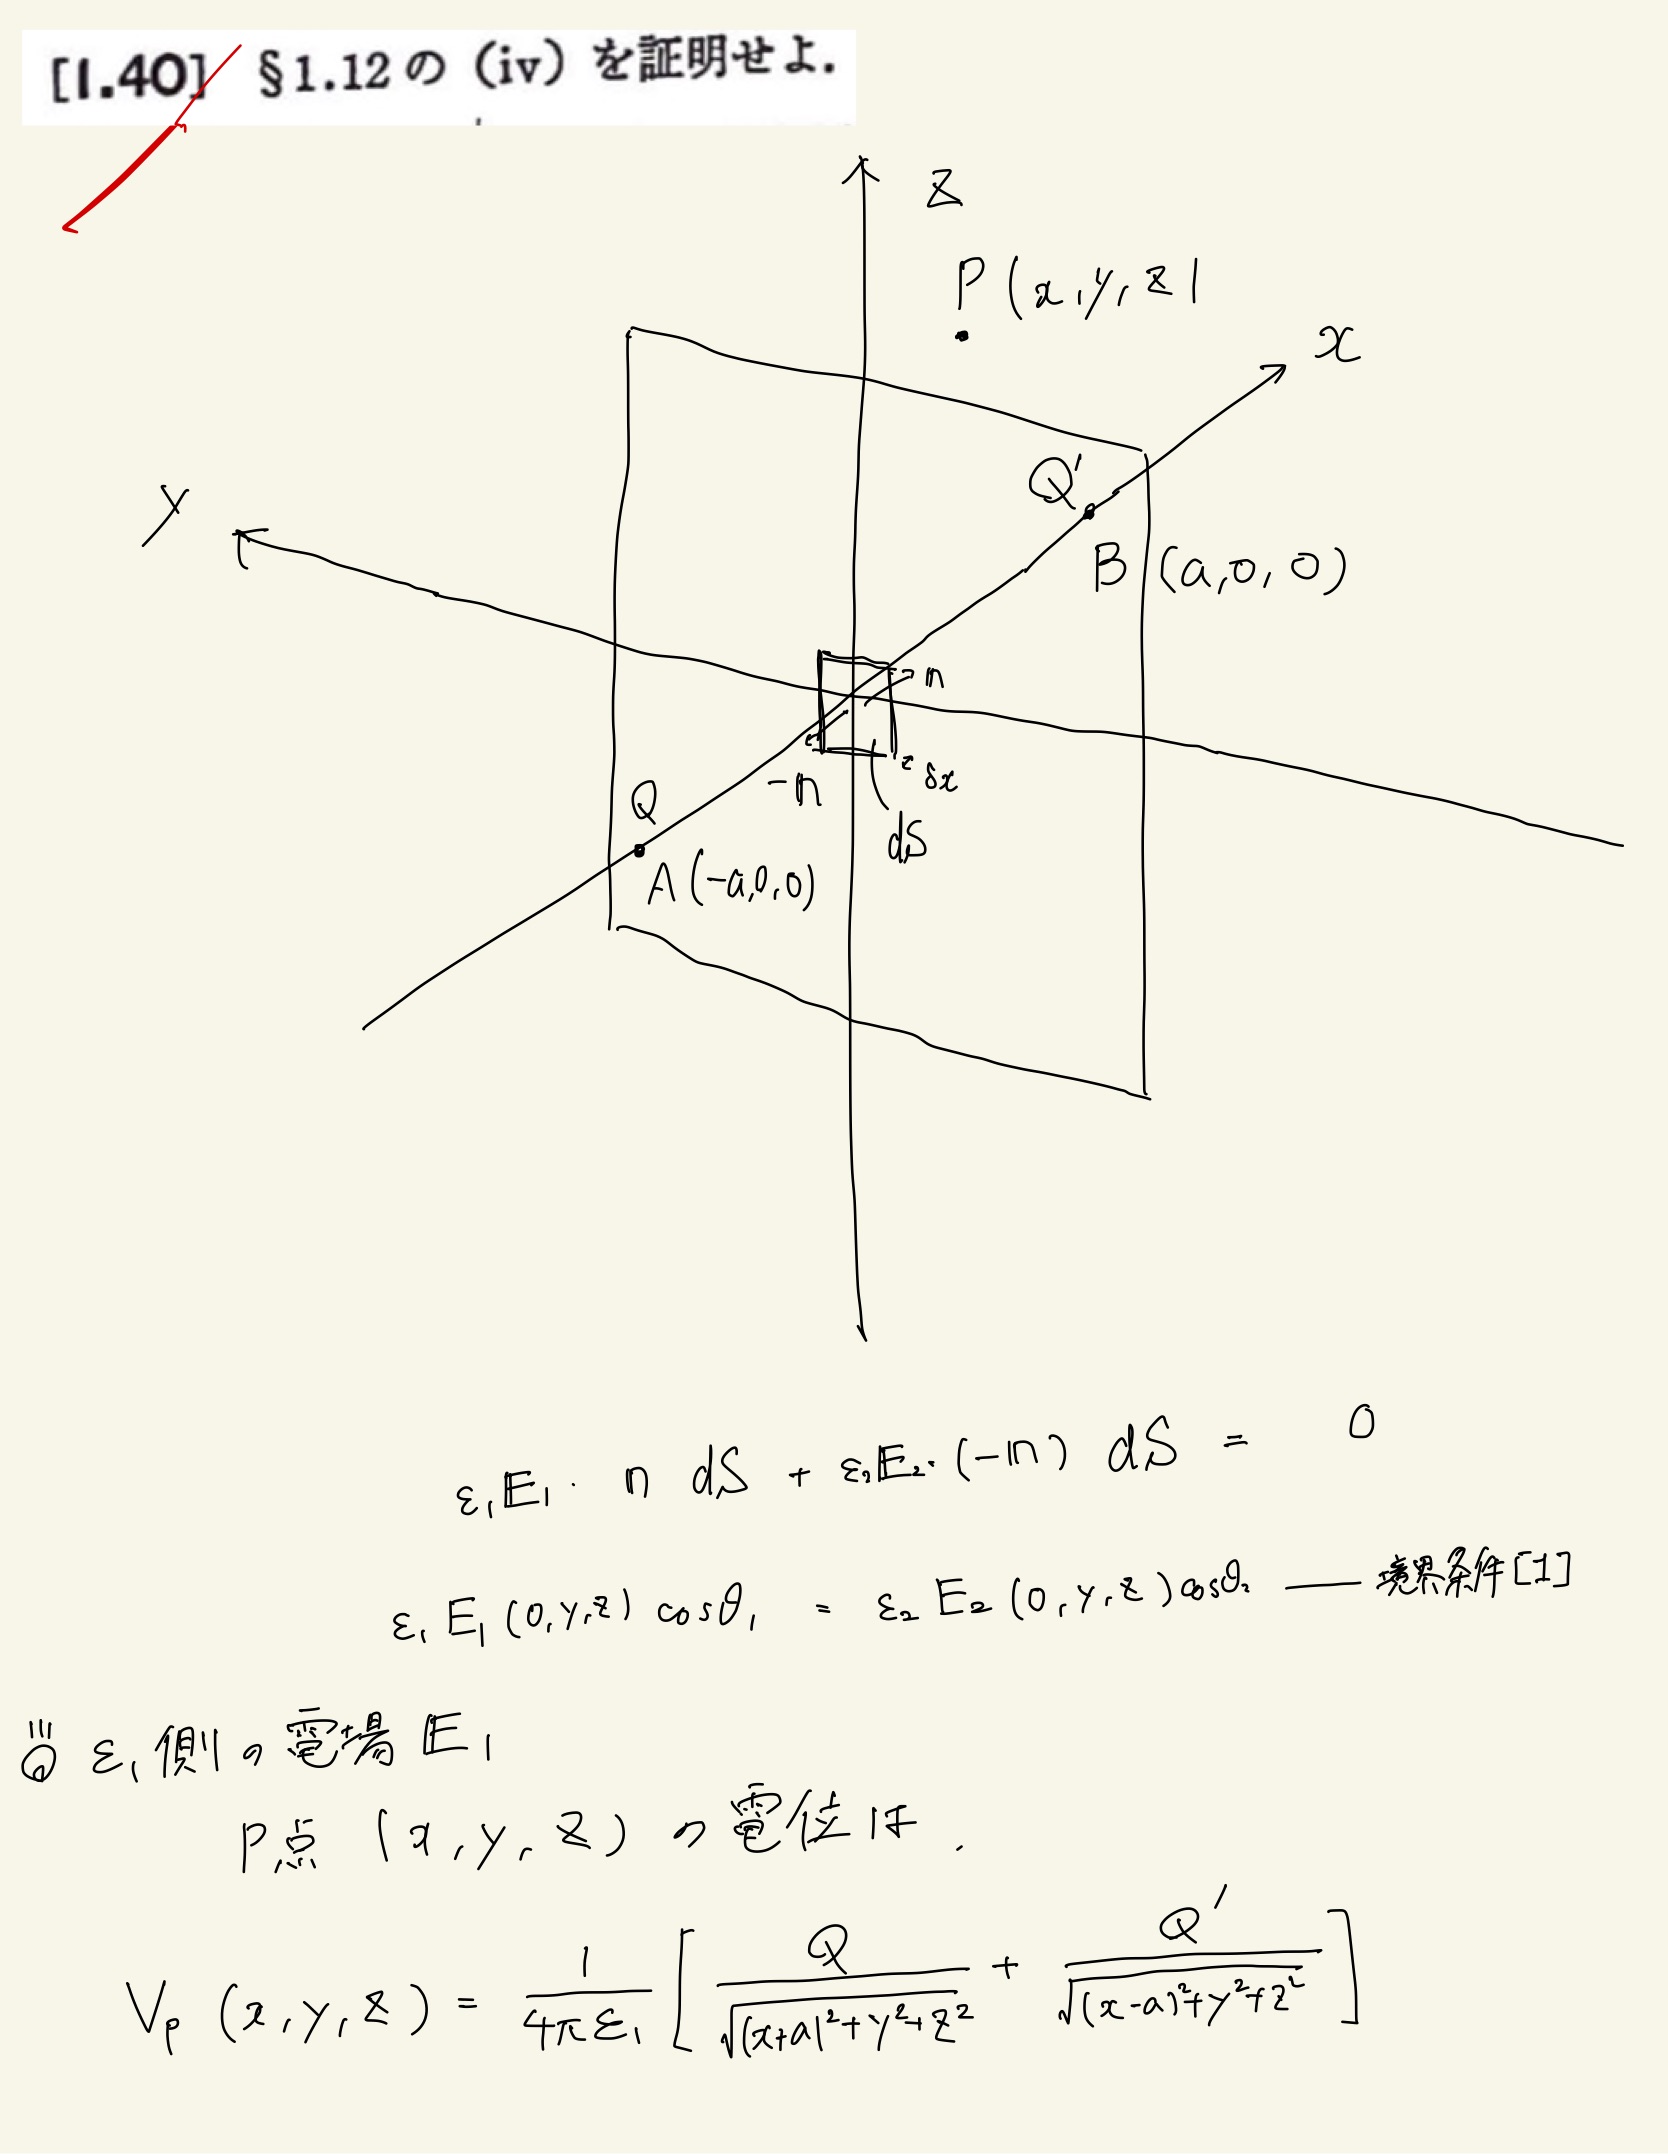 [1.40] §1.12の(iv)を証明せよ.
z
P(x,y,z)
x
Q'
y
B(a,0,0)
n
-n
δx
Q
dS
A(-a,0,0)
ε₁E₁・n dS + ε₂E₂・(-n) dS = 0
ε₁E₁(0,y,z)cosθ₁ = ε₂E₂(0,y,z)cosθ₂ — 境界条件[1]
ε₁側の電場E₁
P点(x,y,z)の電位は.
Vp(x,y,z) = 1/4πε₁ [ Q/√(x+a)²+y²+z² + Q'/√(x-a)²+y²+z² ]